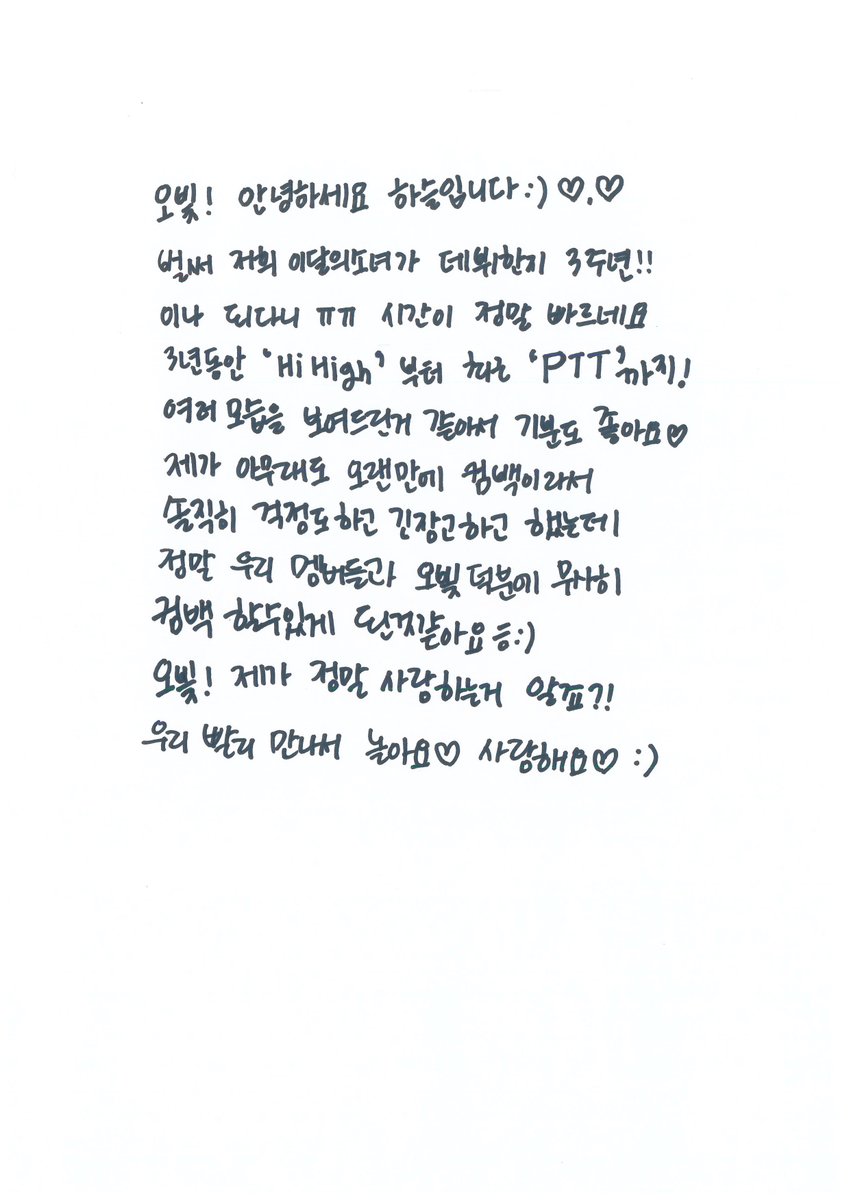 오빛! 안녕하세요 하슬입니다:) ♡.♡
벌써 저희 이달의소녀가 데뷔한지 3주년!!
이나 되다니 ㅠㅠ 시간이 정말 빠르네요
3년동안 'Hi High' 부터 'PTT'까지!
여러모습을 보여드린거 같아서 기분도 좋아요♡
제가 아무래도 오랜만에 컴백이라서
솔직히 걱정도하고 긴장고하고 했는데
정말 우리 멤버들과 오빛덕분에 무사히
컴백 할수있게 된거같아요 :)
오빛! 제가 정말 사랑하는거 알죠?!
우리 빨리 만나서 놀아요♡ 사랑해요♡ :)